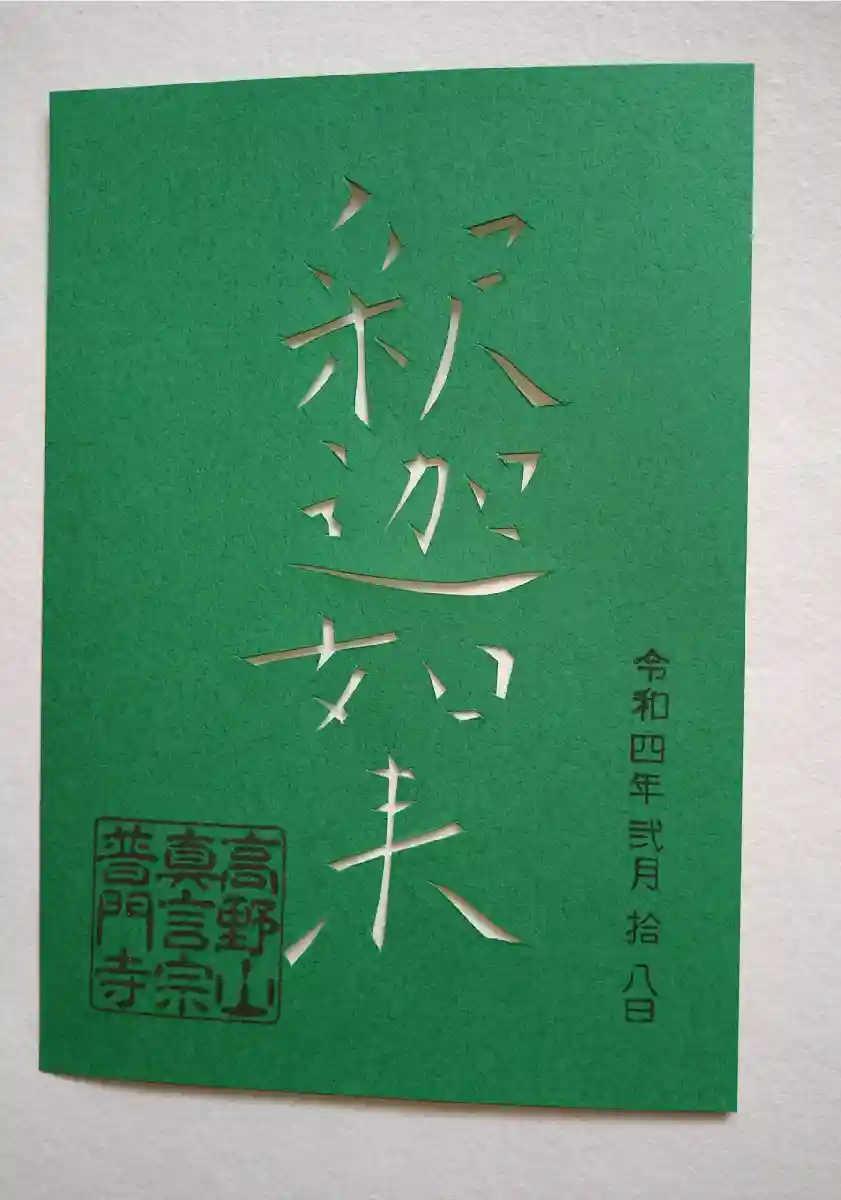 令和四年弐月拾八日
釈迦如来
高野山
真言宗
普門寺